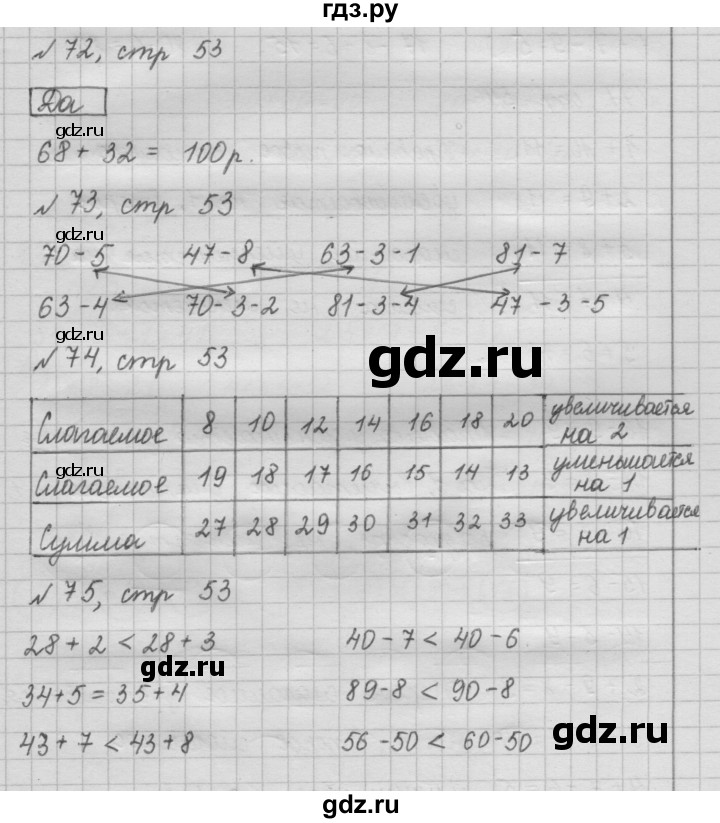 гдз.ру
№ 72, стр 53
Да
gdz.ru
68 + 32 = 100 р.
gdz.ru
№ 73, стр 53
gdz.ru
70 - 5 47 - 8 63 - 3 - 1 81 - 7
63 - 4 70 - 3 - 2 81 - 3 - 4 47 - 3 - 5
gdz.ru
№ 74, стр 53
gdz.ru
Слагаемое 8 10 12 14 16 18 20 увеличивается на 2
gdz.ru
Слагаемое 19 18 17 16 15 14 13 уменьшается на 1
gdz.ru
Сумма 27 28 29 30 31 32 33 увеличивается на 1
№ 75, стр 53
28 + 2 < 28 + 3 40 - 7 < 40 - 6
gdz.ru
34 + 5 = 35 + 4 89 - 8 < 90 - 8
gdz.ru
43 + 7 < 43 + 8 56 - 50 < 60 - 50
gdz.ru